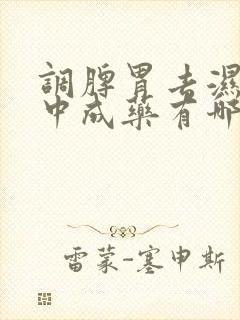 調脾胃去濕
中成藥有哪
雷蒙-塞申斯